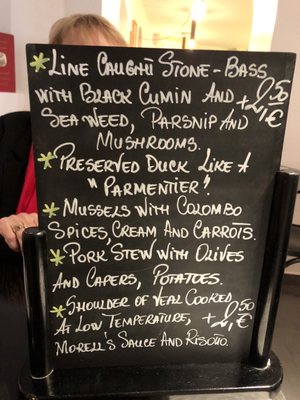 * Line Caught Stone-Bass
with Black Cumin and
Sea Weed, Parsnip and
Mushrooms. +2,50€
* Preserved Duck Like A
"Parmentier".
* Mussels with Colombo
Spices, Cream And Carrots.
* Pork Stew with Olives
And Capers, Potatoes.
* Shoulder of Veal Cooked
At Low Temperature, +2,50€
Morell's Sauce And Risotto.